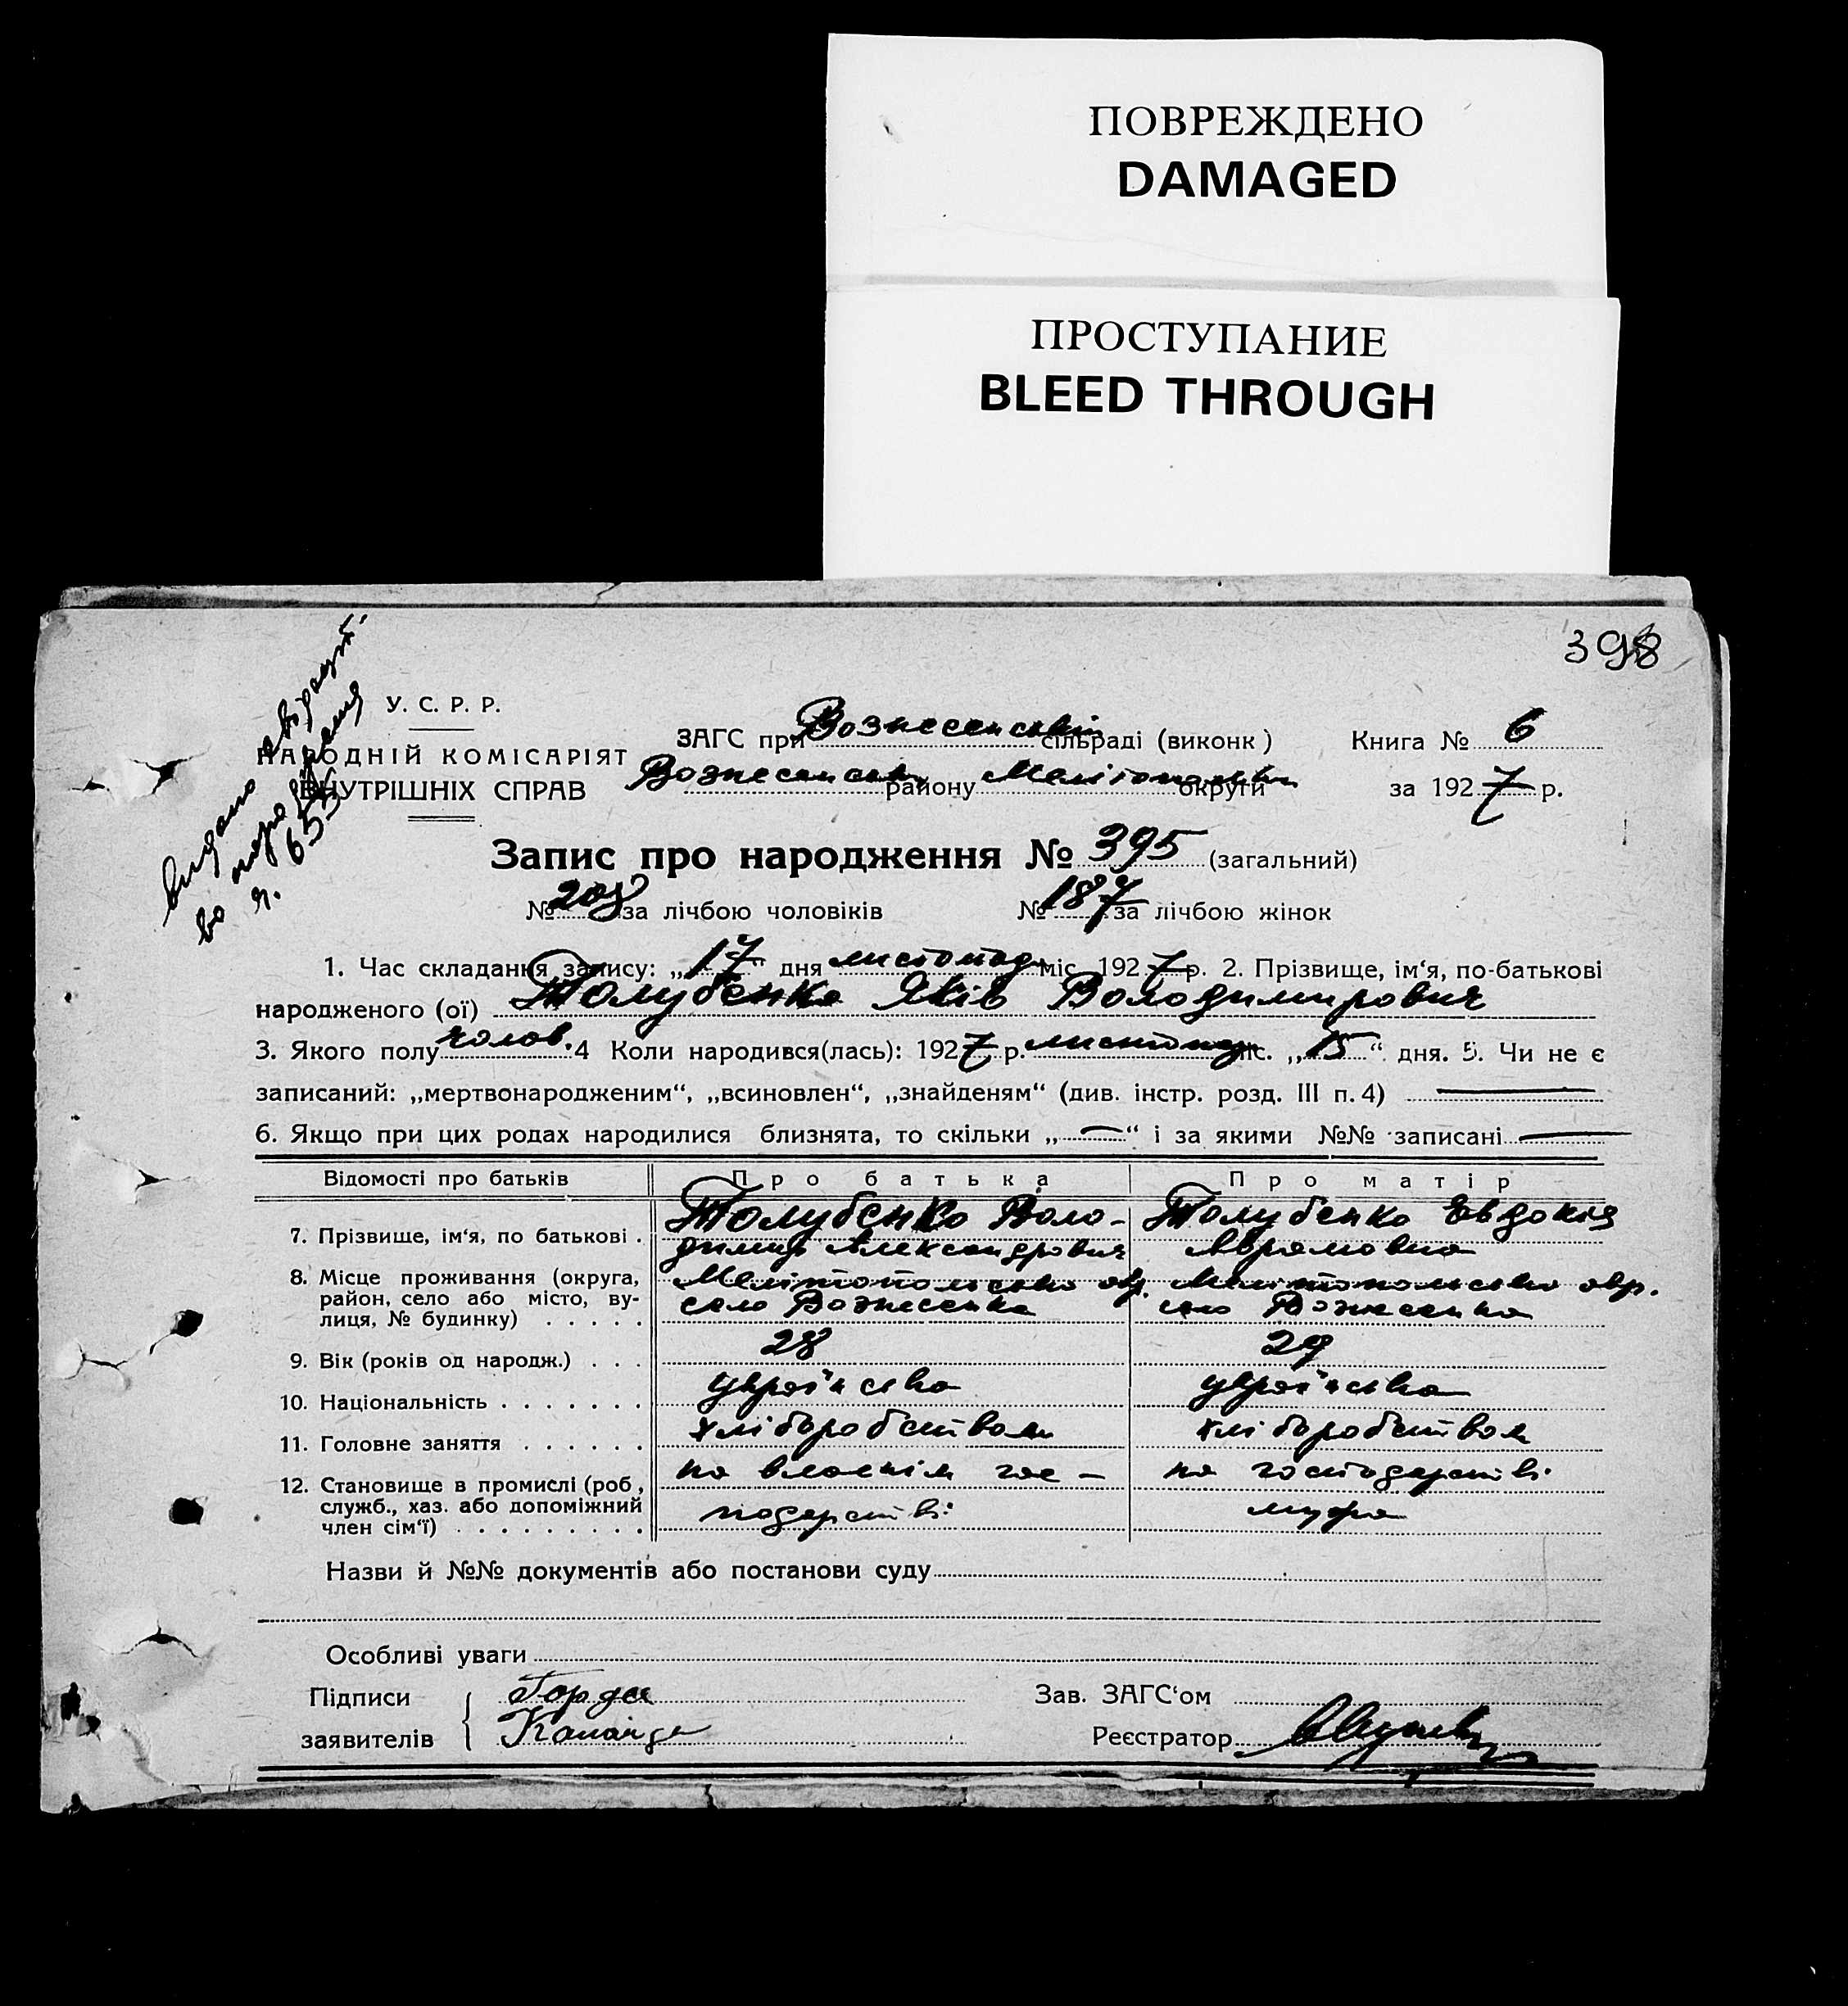 ПОВРЕЖДЕНО
DAMAGED
ПРОСТУПАНИЕ
BLEED THROUGH
398
видано
У. С. Р. Р.
НАРОДНІЙ КОМІСАРІЯТ
ВНУТРІШНІХ СПРАВ
ЗАГС при Вознесенській сільраді (виконк)
Книга № 6
Вознесенськ району Мелітопольськ округи
за 1927 р.
Запис про народження № 395 (загальний)
№ 208 за лічбою чоловіків № 187 за лічбою жінок
1. Час складання запису: „17“ дня листопад міс. 1927 р. 2. Прізвище, ім‘я, по-батькові
народженого (ої) Толубенко Яків Володимирович
3. Якого полу чолов. 4 Коли народився(лась): 1927 р. листопад міс. „15“ дня. 5. Чи не є
записаний: „мертвонародженим“, „всиновлен“, „знайденям“ (див. інстр. розд. III п. 4) —
6. Якщо при цих родах народилися близнята, то скільки „—“ і за якими №№ записані —
Відомості про батьків Про батька Про матір
7. Прізвище, ім‘я, по батькові . Толубенко Воло- Толубенко Евдокія
димир Александрович Аврамовна
8. Місце проживання (округа, Мелітопольська окр. Мелітопольська окр.
район, село або місто, ву- село Вознесенка село Вознесенка
лиця, № будинку) . . . . .
9. Вік (років од народж.) . . . 28 29
10. Національність . . . . . . . українська українська
11. Головне заняття . . . . . . хліборобством хліборобством
12. Становище в промислі (роб, на власнім гос- на господарстві
служб., хаз. або допоміжний подарстві мужа
член сім‘ї) . . . . . . . . .
Назви й №№ документів або постанови суду
Особливі уваги
Підписи
заявителів
Зав. ЗАГС‘ом
Реєстратор